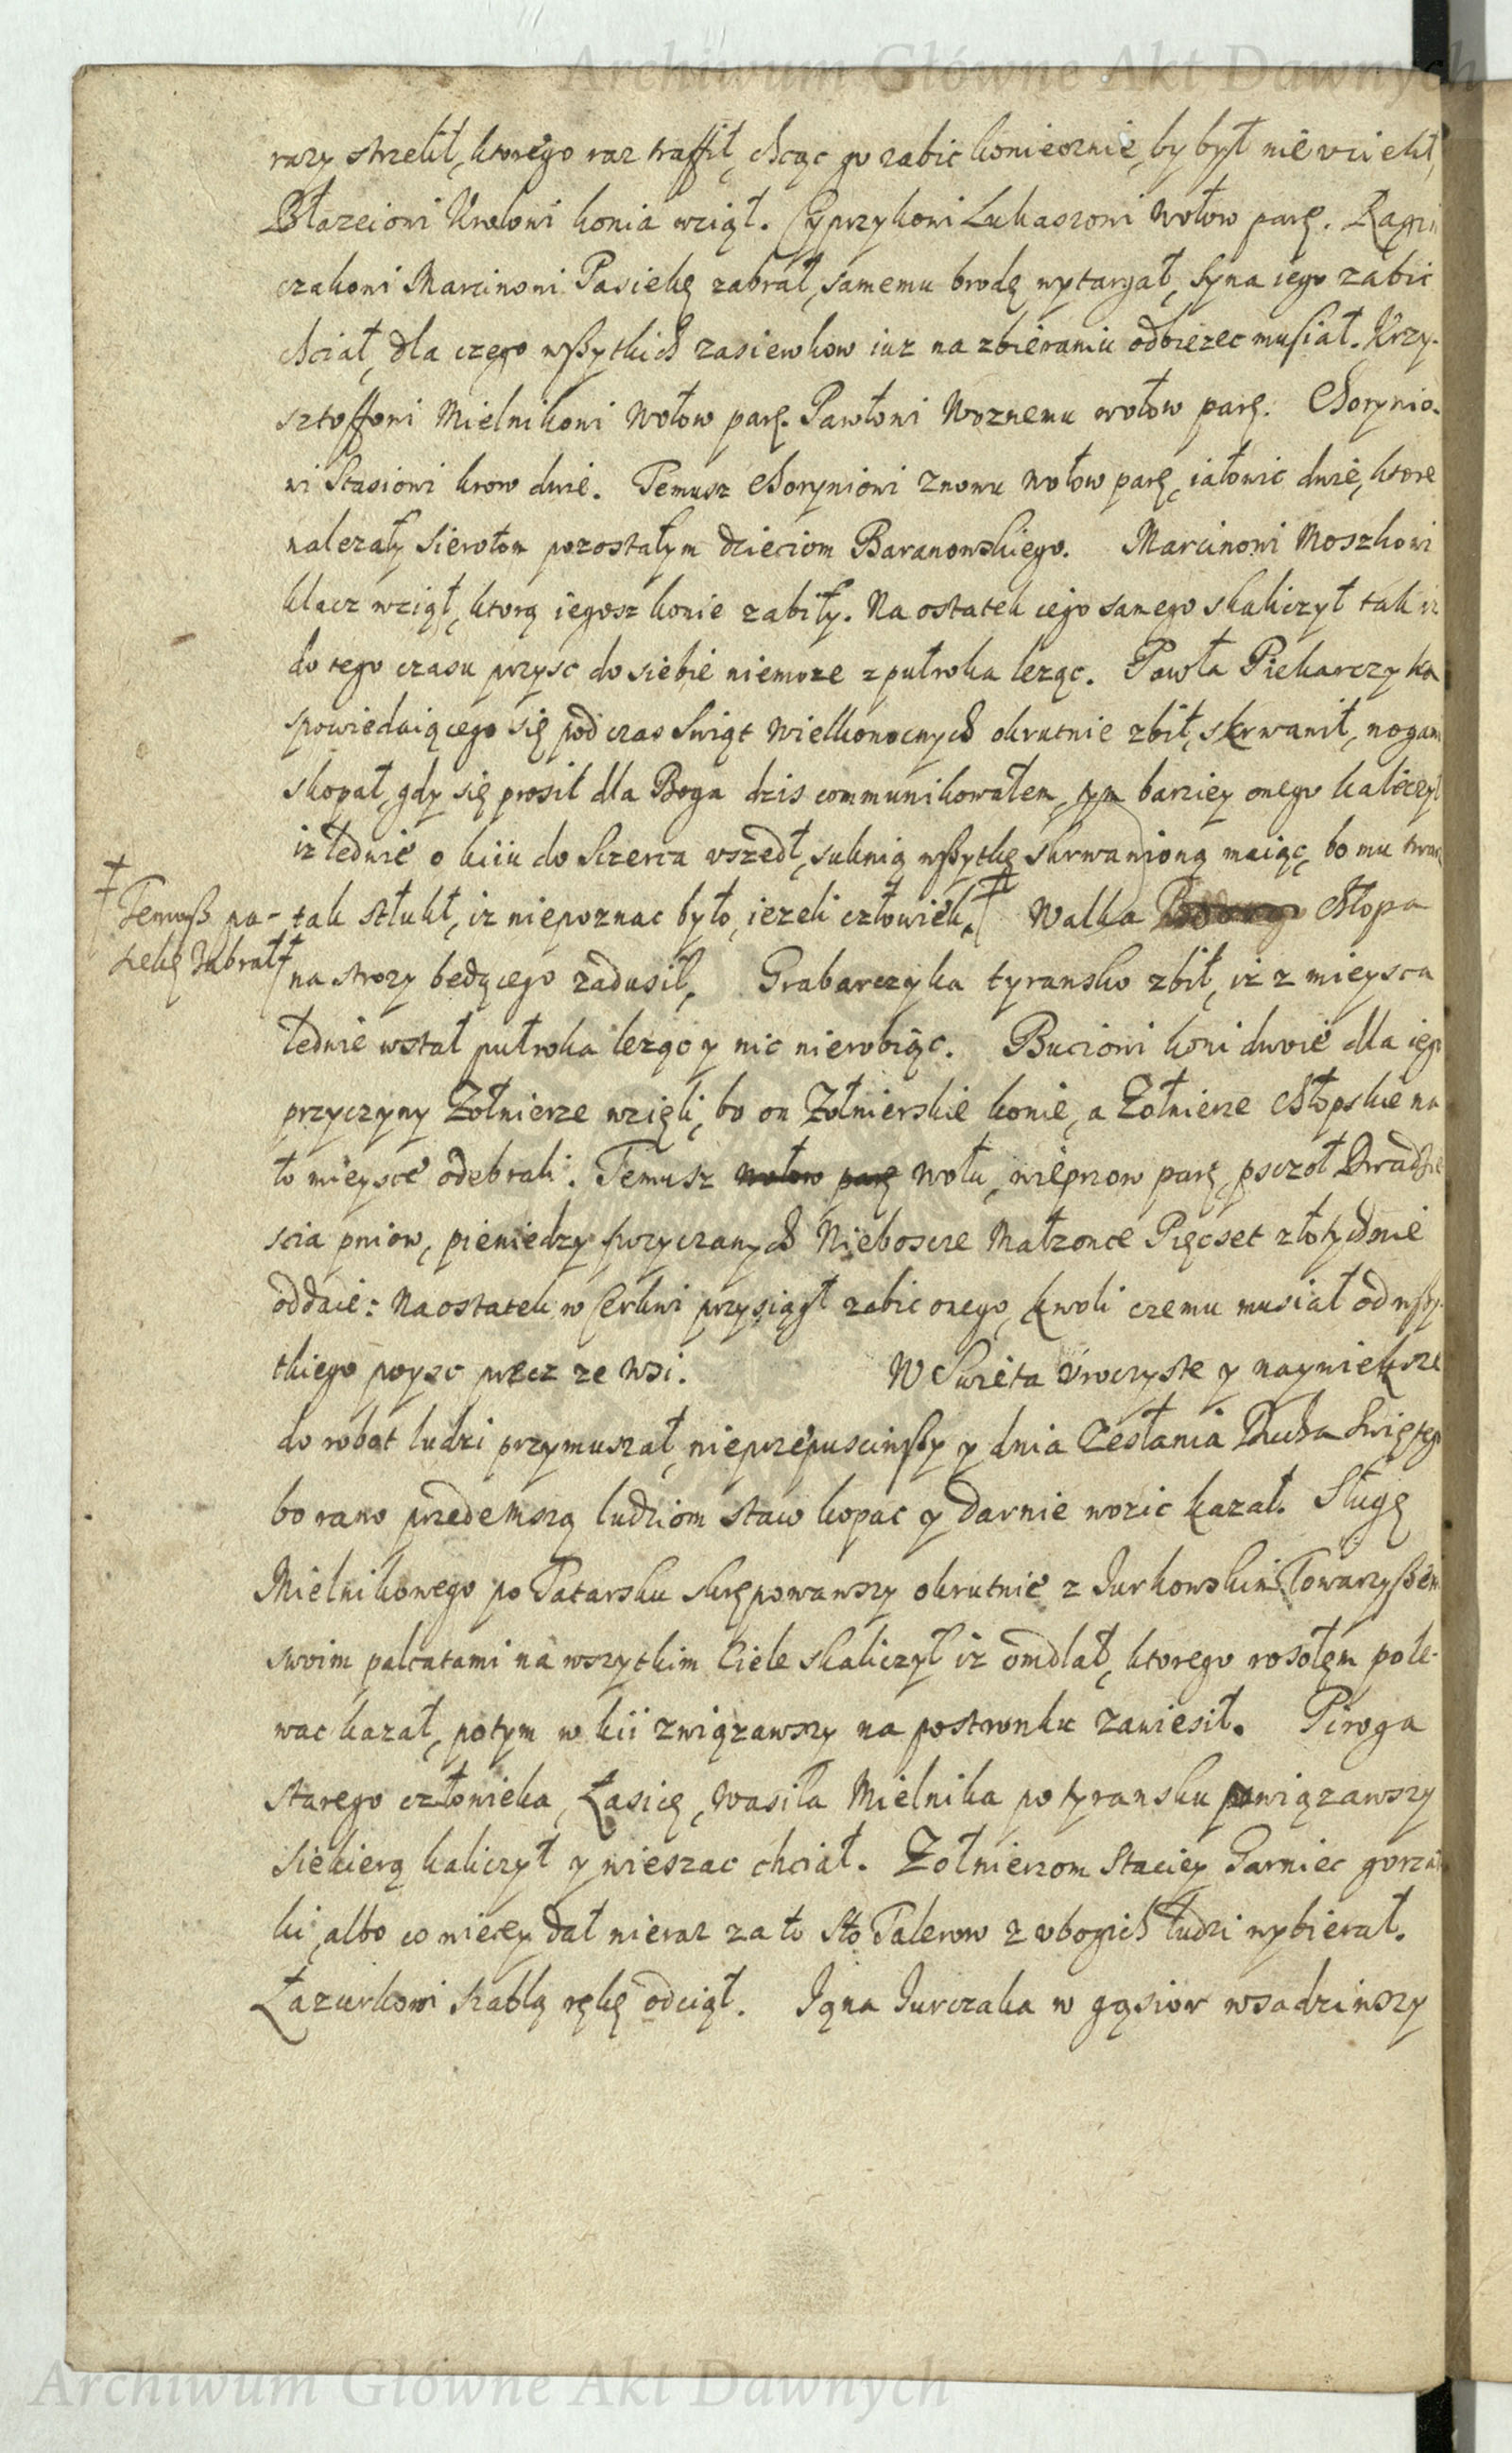 Archiwum Główne Akt Dawnych
razy strzelił, ktorego raz traffił, chcąc go zabic koniecznie, by był nie vciekł,
Błazeiowi Krolowi konia wziął. Cyprzykowi Lukaszowi Wołow parę.
czakowi Marcinowi Pasiekę zabrał, samemu brodę wytargał, Syna iego zabic
chciał, dla czego wszytkich zasiewkow iuz na zbieraniu odbiezec musiał. Krzy-
sztoffowi Mielnikowi Wołow parę. Pawłowi Woznemu wołow parę. Chorynio-
wi Stasiowi krow dwie. Temusz Choryniowi Znowu Wołow parę, iałowic dwie, ktore
nalezały Sierotom pozostałym dzieciom Baranowskiego. Marcinowi Moszkowi
klacz wziął, ktorą iegosz konie zabiły. Na ostatek iego samego skaliczył tak iz
do tego czasu przysc do siebie niemoze z pułroka leząc. Pawła Piekarczyka
spowiedaiącego się podczas Swiąt Wielkonocnych okrutnie zbił, skrwawił, nogami
skopał, gdy się prosił dla Boga dzis communikowałem, tym barziey onego kaliczył
iz ledwie o kiiu do Szczerca vszedł, suknią wszytkę skrwawioną maiąc, bo mu twarz
tak stłukł, iz niepoznac było, iezeli człowiek. ‡ Walka Chłopa
‡ Temusz pa-
siekę Zabrał ‡
na strozy będącego zadusił, Grabarczyka tyransko zbił, iz z mieysca
ledwie wstał pułroka leząc y nic nierobiąc. Buciowi koni dwoie dla iego
przyczyny Zołnierze wzięli, bo on Zołnierskie konie, a Zołnierze Chłopskie na
to mieysce odebrali. Temusz wołow parę Wołu, wieprzow parę, psczoł Dwadzie
scia pniow, pieniedzy pozyczanych Nieboscze Małzonce Pięcset złotych nie
oddaie: Na ostatek w Cerkwi przysiągł zabic onego, kwoli czemu musiał od wszy-
tkiego poysc precz ze Wsi. W Swięta Vroczyste y naywieksze
do robot ludzi przymuszał, nieprzepusciwszy y dnia Zesłania Ducha Swiętego
bo rano przedemszą ludziom staw kopac y darnie wozic kazał. Sługę
Mielnikowego po Tatarsku skrępowawszy okrutnie z Jurkowskim Towarzyszem
swoim palcatami na wszytkim Ciele skaliczył iz omdlał, ktorego rosołem pole-
wac kazał, potym w kii związawszy na postronku zawiesił. Piroga
starego człowieka, Łasicę, Wasila Mielnika po tyransku powiązawszy
siekierą kaliczył y wieszac chciał. Zołnierzom Staciey Garniec gorzał
ki, albo co wiecey dał nieraz za to Sto Talerow z vbogich ludzi wybierał.
Łazurkowi szablą rękę odciął. Jurczaka w gąsior wsadziwszy
Archiwum Główne Akt Dawnych